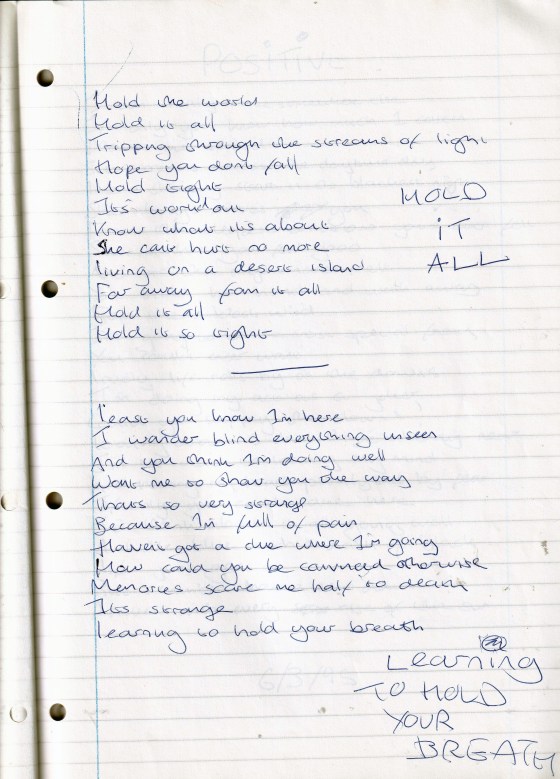 Hold the world
Hold it all
Tripping through the streams of light
Hope you dont fall
Hold tight
Its worldout
Know what its about
She cant hurt no more
living on a desert island
Far away from it all
Hold it all
Hold it so tight
HOLD
iT
ALL
least you know Im here
I wander blind everything unseen
And you think Im doing well
Want me to show you the way
Thats so very strange
Because Im full of pain
Havent got a clue where Im going
How could you be convinced otherwise
Memories scare me half to death
Its strange
learning to hold your breath
Learning
TO HOLD
YOUR
BREATH
POSiTiVE